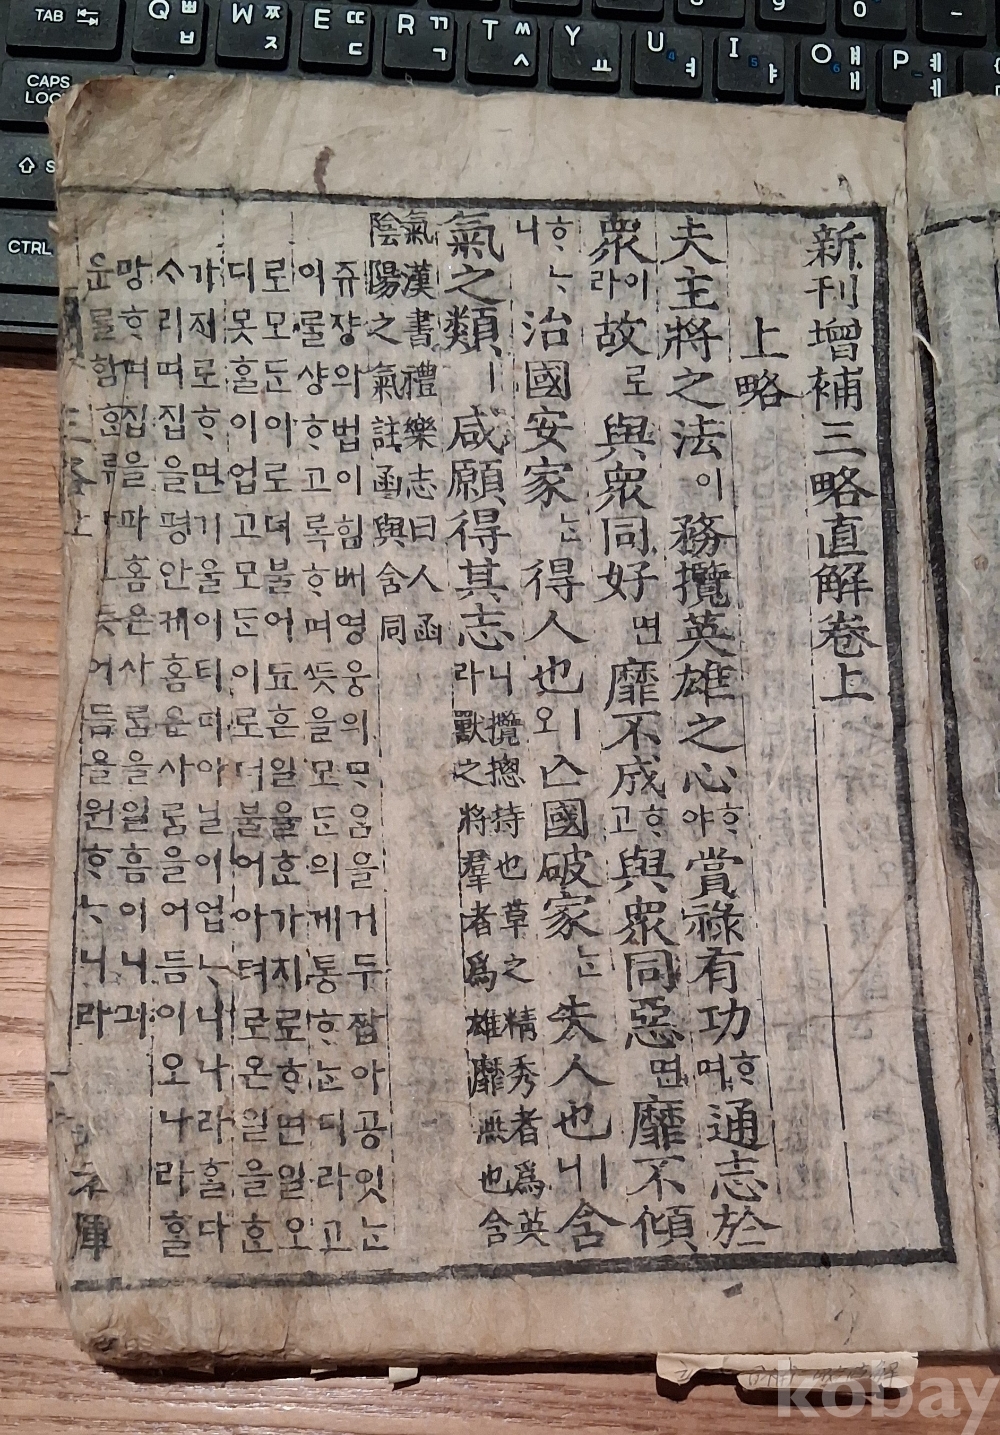 新刊增補三略直解卷上
上略
夫主將之法이務攬英雄之心ᄒᆞ야賞祿有功ᄒᆞ며通志於
衆이라故로與衆同好면靡不成ᄒᆞ고與衆同惡면靡不傾
ᄒᆞᄂᆞ니治國安家ᄂᆞᆫ得人也ㅣ오亾國破家ᄂᆞᆫ失人也ㅣ니含
氣之類ㅣ咸願得其志니라攬摠持也草之精秀者爲英
獸之將羣者爲雄靡無也含
氣漢書禮樂志曰人函
陰陽之氣註函與含同
쥬쟝의법이힘ᄡᅥ영웅의ᄆᆞᄋᆞᆷ을거두잡아공잇ᄂᆞᆫ
이ᄅᆞᆯ샹ᄒᆞ고록ᄒᆞ며ᄠᅳᆺ을모든의게통ᄒᆞᄂᆞᆫ디라고
로모든아로더불어됴흔일을효가지로ᄒᆞ면일오
디못ᄒᆞᆯ이업고모든이로더불어아쳐로온일을ᄒᆞᆫ
가지로ᄒᆞ면기울이티띠아닐이업ᄂᆞ니나라ᄒᆞᆯ다
ᄉᆞ리며집을평안케홈은사ᄅᆞᆷ을어듬이오나라ᄒᆞᆯ
망ᄒᆞ며집을파홈은사ᄅᆞᆷ을일흠이니긔
운을함ᄒᆞᆫ류ㅣ다그ᄠᅳᆺ어듬을원ᄒᆞᄂᆞ니라
三略上
TAB
Q ㅃ ㅂ
W ㅉ ㅈ
E ㄸ ㄷ
R ㄲ ㄱ
T ㅆ ㅅ
Y ㅛ
U 4 ㅕ
I 5 ㅑ
O 6 ㅒ ㅐ
P ㅖ ㅔ
CAPS
CTRL
kobay